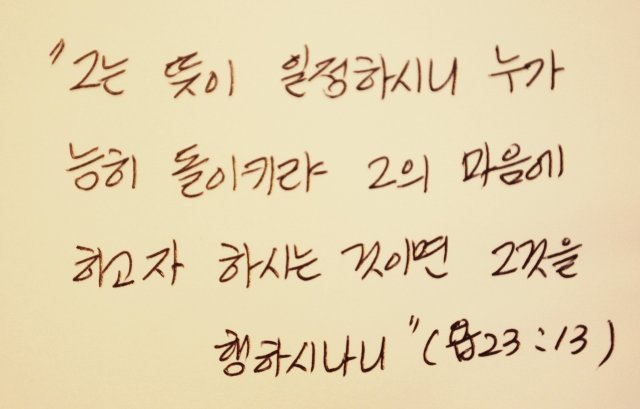 "그는 뜻이 일정하시니 누가
능히 돌이키랴 그의 마음에
하고자 하시는 것이면 그것을
행하시나니" (욥23:13)